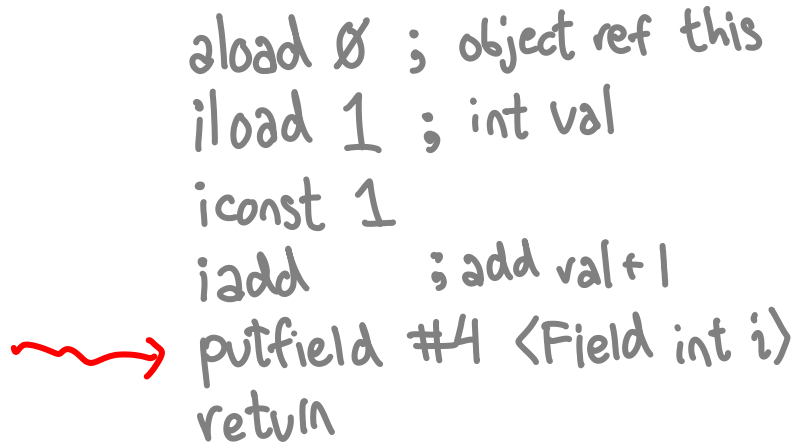 aload 0 ; object ref this
iload 1 ; int val
iconst 1
iadd ; add val + 1
putfield #4 <Field int i>
return